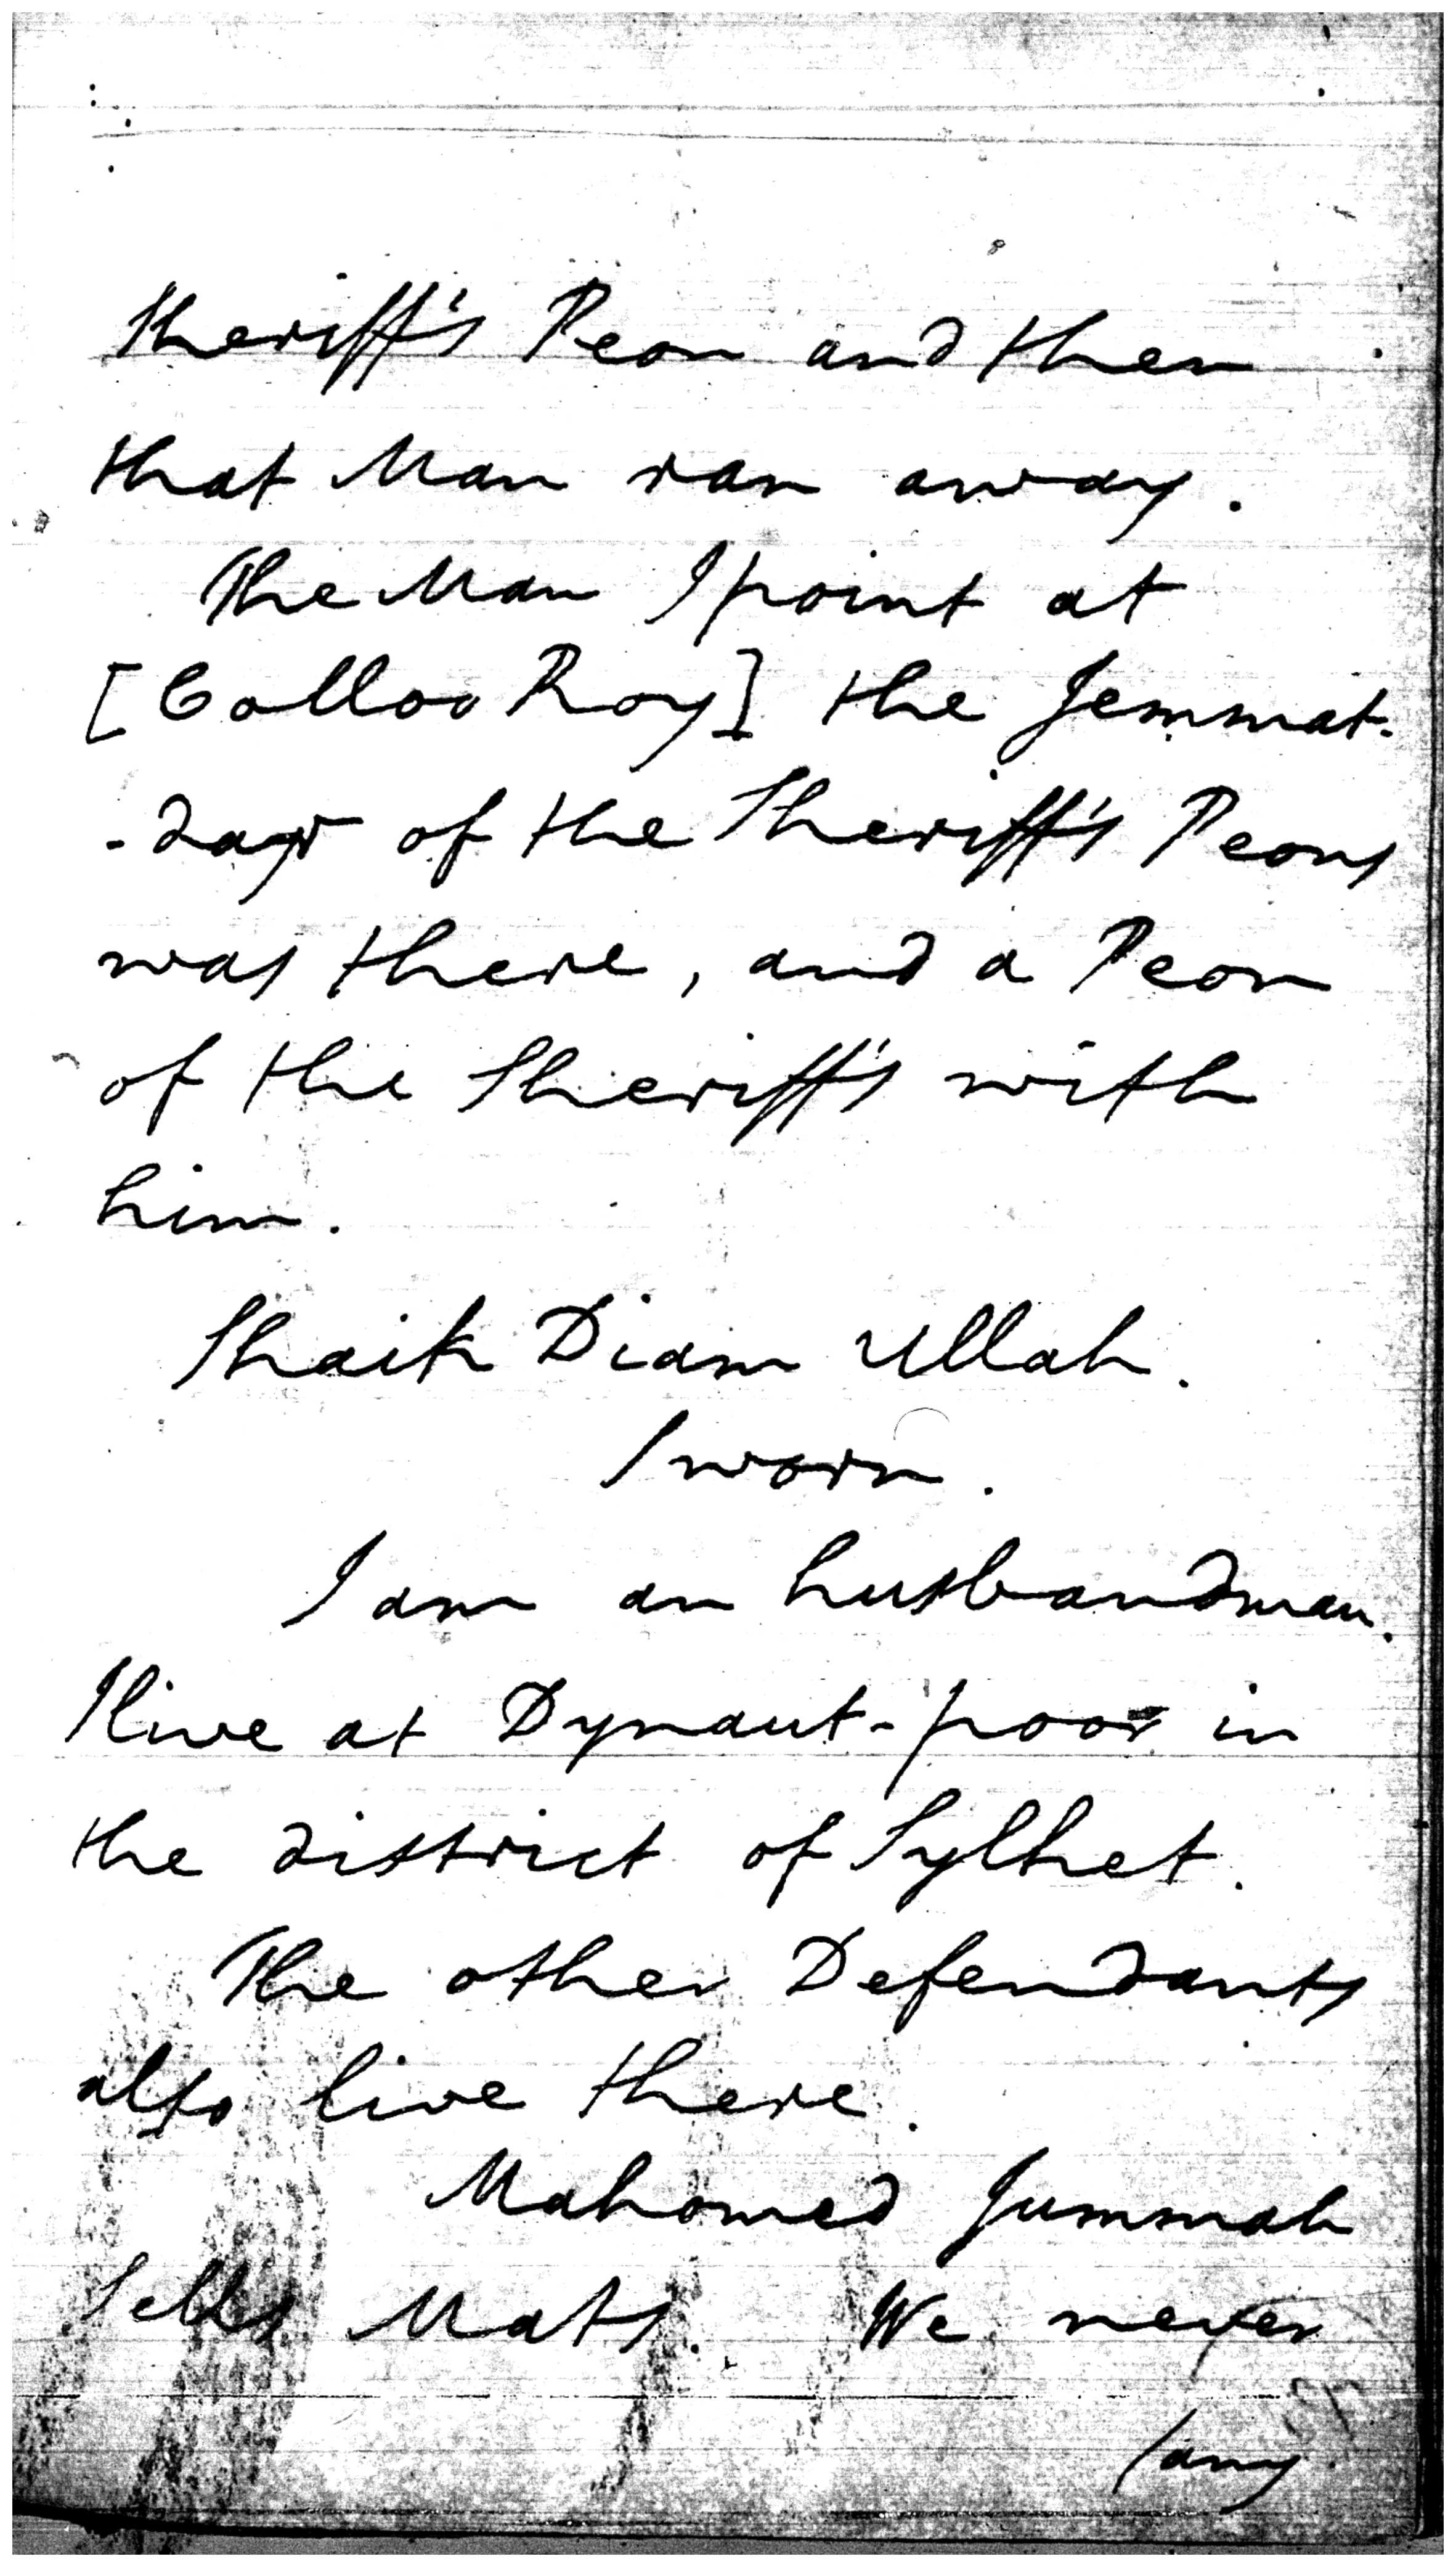 Sheriff's Peon and then
that Man ran away.
The Man I point at
[Colloo Roy] the Jemmat-
-dayr of the Sheriff's Peons
was there, and a Peon
of the Sheriff's with
him.
Shaik Diam Ullah.
Sworn.
I am an husbandman.
I live at Dynaut-poor in
the district of Sylhet.
The other Defendants
also live there.
Mahomed Jummah
Sells Mats. We never
/any